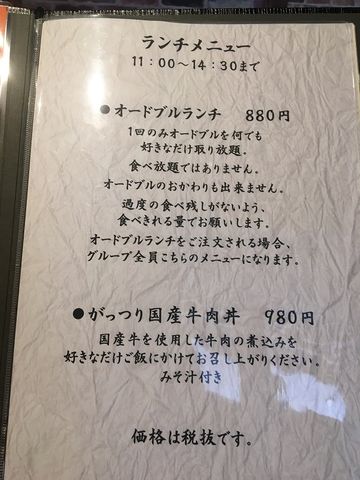 ランチメニュー
11:00〜14:30まで
●オードブルランチ 880円
1回のみオードブルを何でも
好きなだけ取り放題。
食べ放題ではありません。
オードブルのおかわりも出来ません。
過度の食べ残しがないよう、
食べきれる量でお願いします。
オードブルランチをご注文される場合、
グループ全員こちらのメニューになります。
●がっつり国産牛肉丼 980円
国産牛を使用した牛肉の煮込みを
好きなだけご飯にかけてお召し上がりください。
みそ汁付き
価格は税抜です。